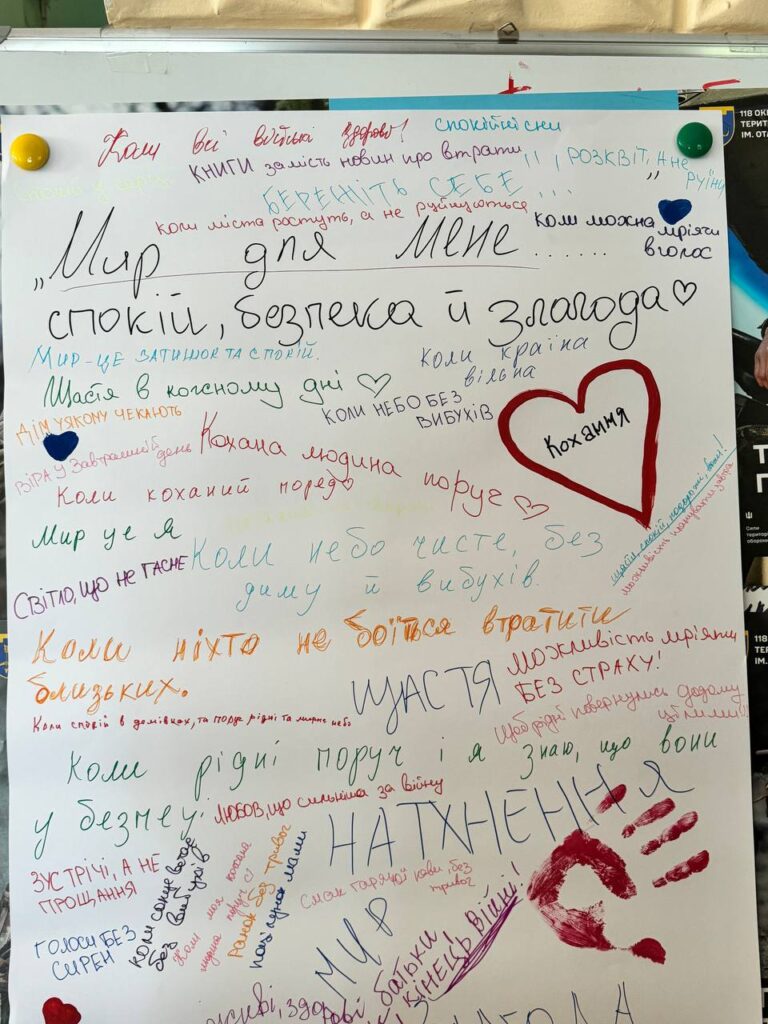 Коли всі близькі здорові!
спокійні сни
КНИГИ замість новин про втрати
РОЗКВІТ, а не
руїни
БЕРЕЖІТЬ СЕБЕ...
коли міста ростуть, а не руйнуються
коли можна
мріяти
вголос
„Мир для мене ......
спокій, безпека й злагода
Мир – це затишок та спокій.
коли країна
вільна
Щастя в кожному дні
КОЛИ НЕБО БЕЗ
ВИБУХІВ
ДІМ У ЯКОМУ ЧЕКАЮТЬ
Кохання
ВІРА У Завтрашній день
Кохана людина поруч
Коли коханий поряд
щастя, спокій, подорожі,
можливість планувати завтра
Мир це Я
Коли небо чисте, без
диму й вибухів.
СВІТЛО, ЩО НЕ ГАСНЕ
Коли ніхто не боїться втратити
близьких.
ЩАСТЯ
МОЖЛИВІСТЬ мріяти
БЕЗ СТРАХУ!
Коли спокій в домівках, та поруч рідні та мирне небо
Щоб рідні повернулись додому
цілими!!
Коли рідні поруч і я знаю, що вони
у безпеці.
ЛЮБОВ, що сильніша за війну
НАТХНЕННЯ
ЗУСТРІЧІ, А НЕ
ПРОЩАННЯ
коли сонце
без вибухів
Коли моя кохана
людина поруч
Ранок без тривог
поцілунок мами
Смак гарячої кави, без
тривог
ГОЛОСИ БЕЗ
СИРЕН
МИР
батьки,
КІНЕЦЬ ВІЙНИ!
живі, здорові
118 ОК
ТЕРИТ
ІМ. ОТА
Сили
територ
оборон
118
ТЕР
ІМ.